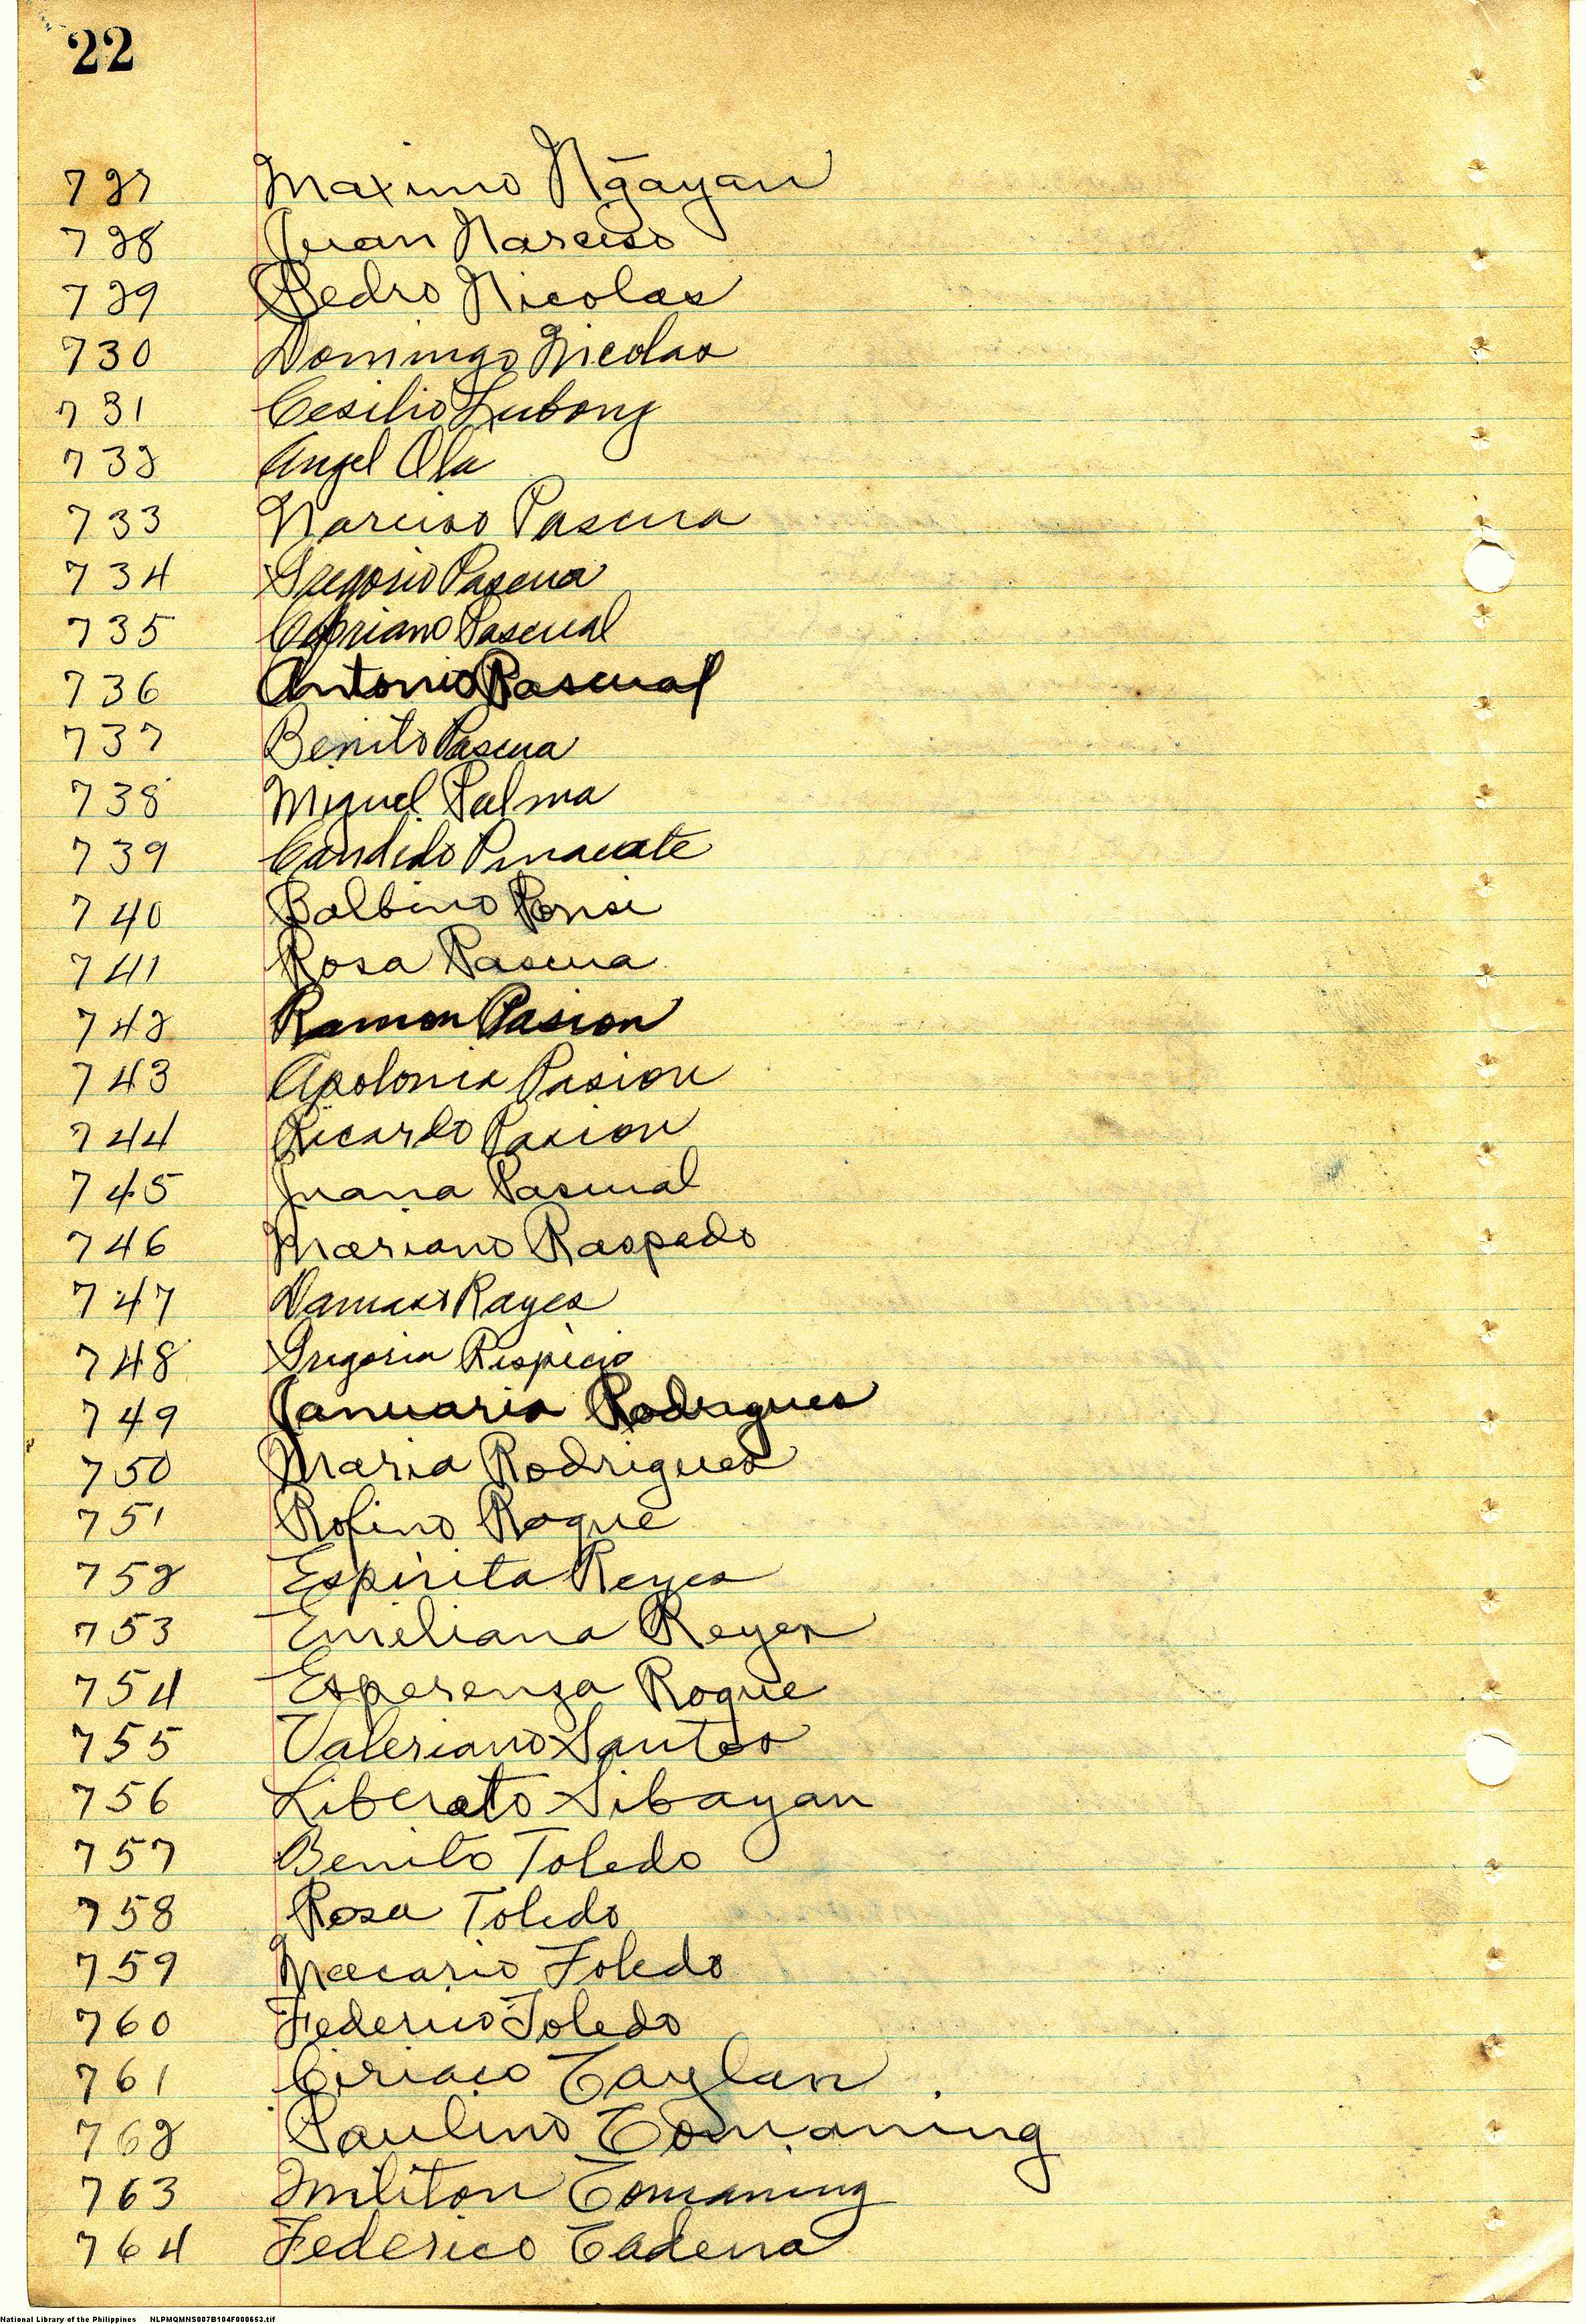 22
727 Maximo Ñgayan
728 Juan Narciso
729 Pedro Nicolas
730 Domingo Nicolas
731 Cesilio Lubong
732 Angel Ola
733 Narciso Pascua
734 Gregorio Pascua
735 Cipriano Pascual
736 Antonio Pascual
737 Benito Pascua
738 Miguel Palma
739 Candido Pinacate
740 Balbino Ponsi
741 Rosa Pascua
742 Ramon Pasion
743 Apolonia Pasion
744 Ricardo Pasion
745 Juana Pascual
746 Mariano Raspado
747 Damaso Rayes
748 Gregoria Respicio
749 Januaria Rodrigues
750 Maria Rodrigues
751 Rofino Roque
752 Espirita Reyes
753 Emeliana Reyes
754 Esperensa Roque
755 Valeriano Santos
756 Liberato Sibayan
757 Benito Toledo
758 Rosa Toledo
759 Macario Toledo
760 Federico Toledo
761 Ciriaco Taylan
762 Paulino Tomaning
763 Militon Tomaning
764 Federico Tadena
National Library of the Philippines NLPMQMNS007B104F000653.tif